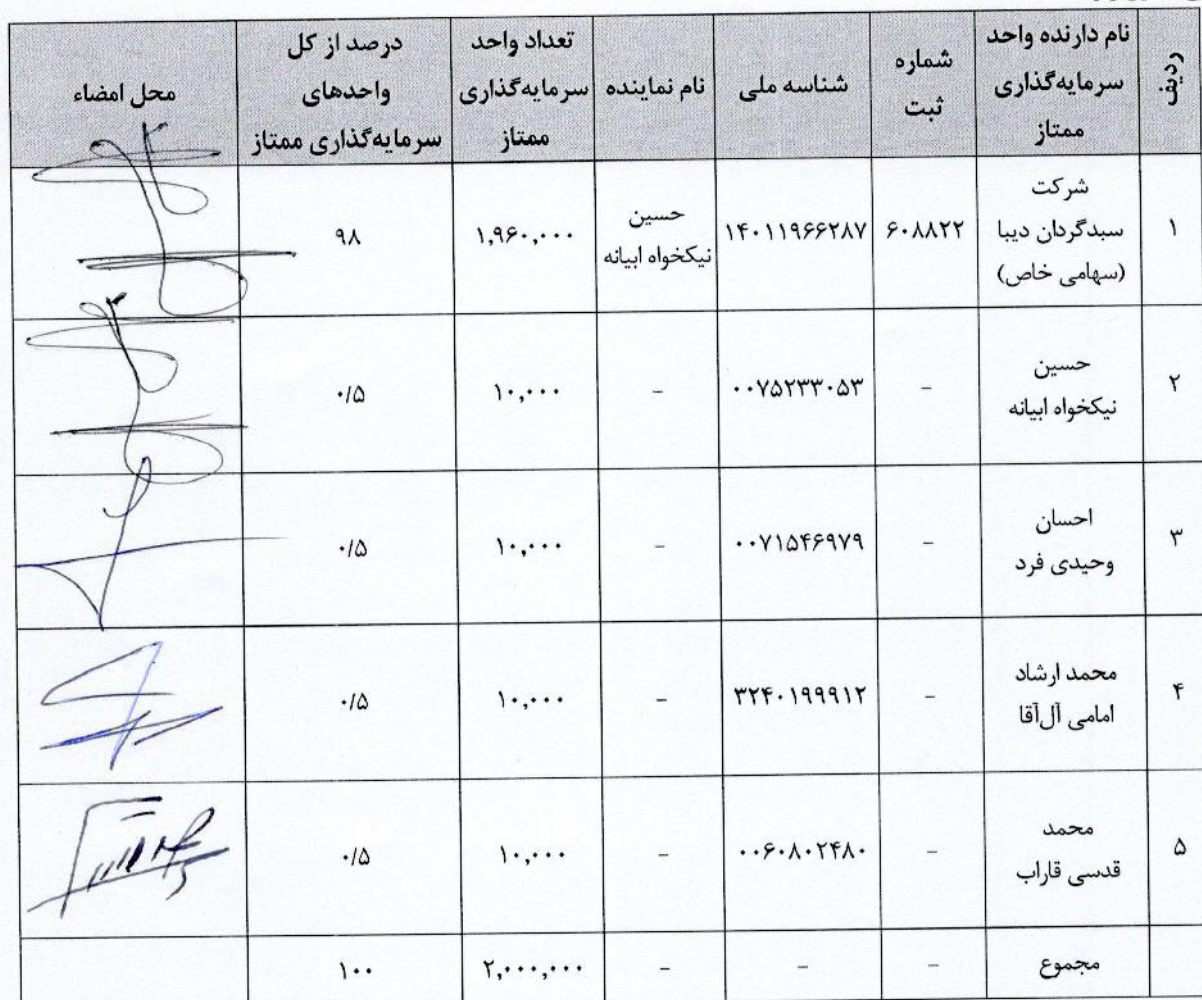 ردیف | نام دارنده واحد سرمایه‌گذاری ممتاز | شماره ثبت | شناسه ملی | نام نماینده | تعداد واحد سرمایه‌گذاری ممتاز | درصد از کل واحدهای سرمایه‌گذاری ممتاز | محل امضاء
۱ | شرکت سبدگردان دیبا (سهامی خاص) | ۶۰۸۸۲۲ | ۱۴۰۱۱۹۶۶۲۸۷ | حسین نیکخواه ابیانه | ۱,۹۶۰,۰۰۰ | ۹۸
۲ | حسین نیکخواه ابیانه | - | ۰۰۷۵۲۳۳۰۵۳ | - | ۱۰,۰۰۰ | ۰/۵
۳ | احسان وحیدی فرد | - | ۰۰۷۱۵۴۶۹۷۹ | - | ۱۰,۰۰۰ | ۰/۵
۴ | محمد ارشاد امامی آل‌آقا | - | ۳۲۴۰۱۹۹۹۱۲ | - | ۱۰,۰۰۰ | ۰/۵
۵ | محمد قدسی قاراب | - | ۰۰۶۰۸۰۲۴۸۰ | - | ۱۰,۰۰۰ | ۰/۵
مجموع | - | - | - | ۲,۰۰۰,۰۰۰ | ۱۰۰